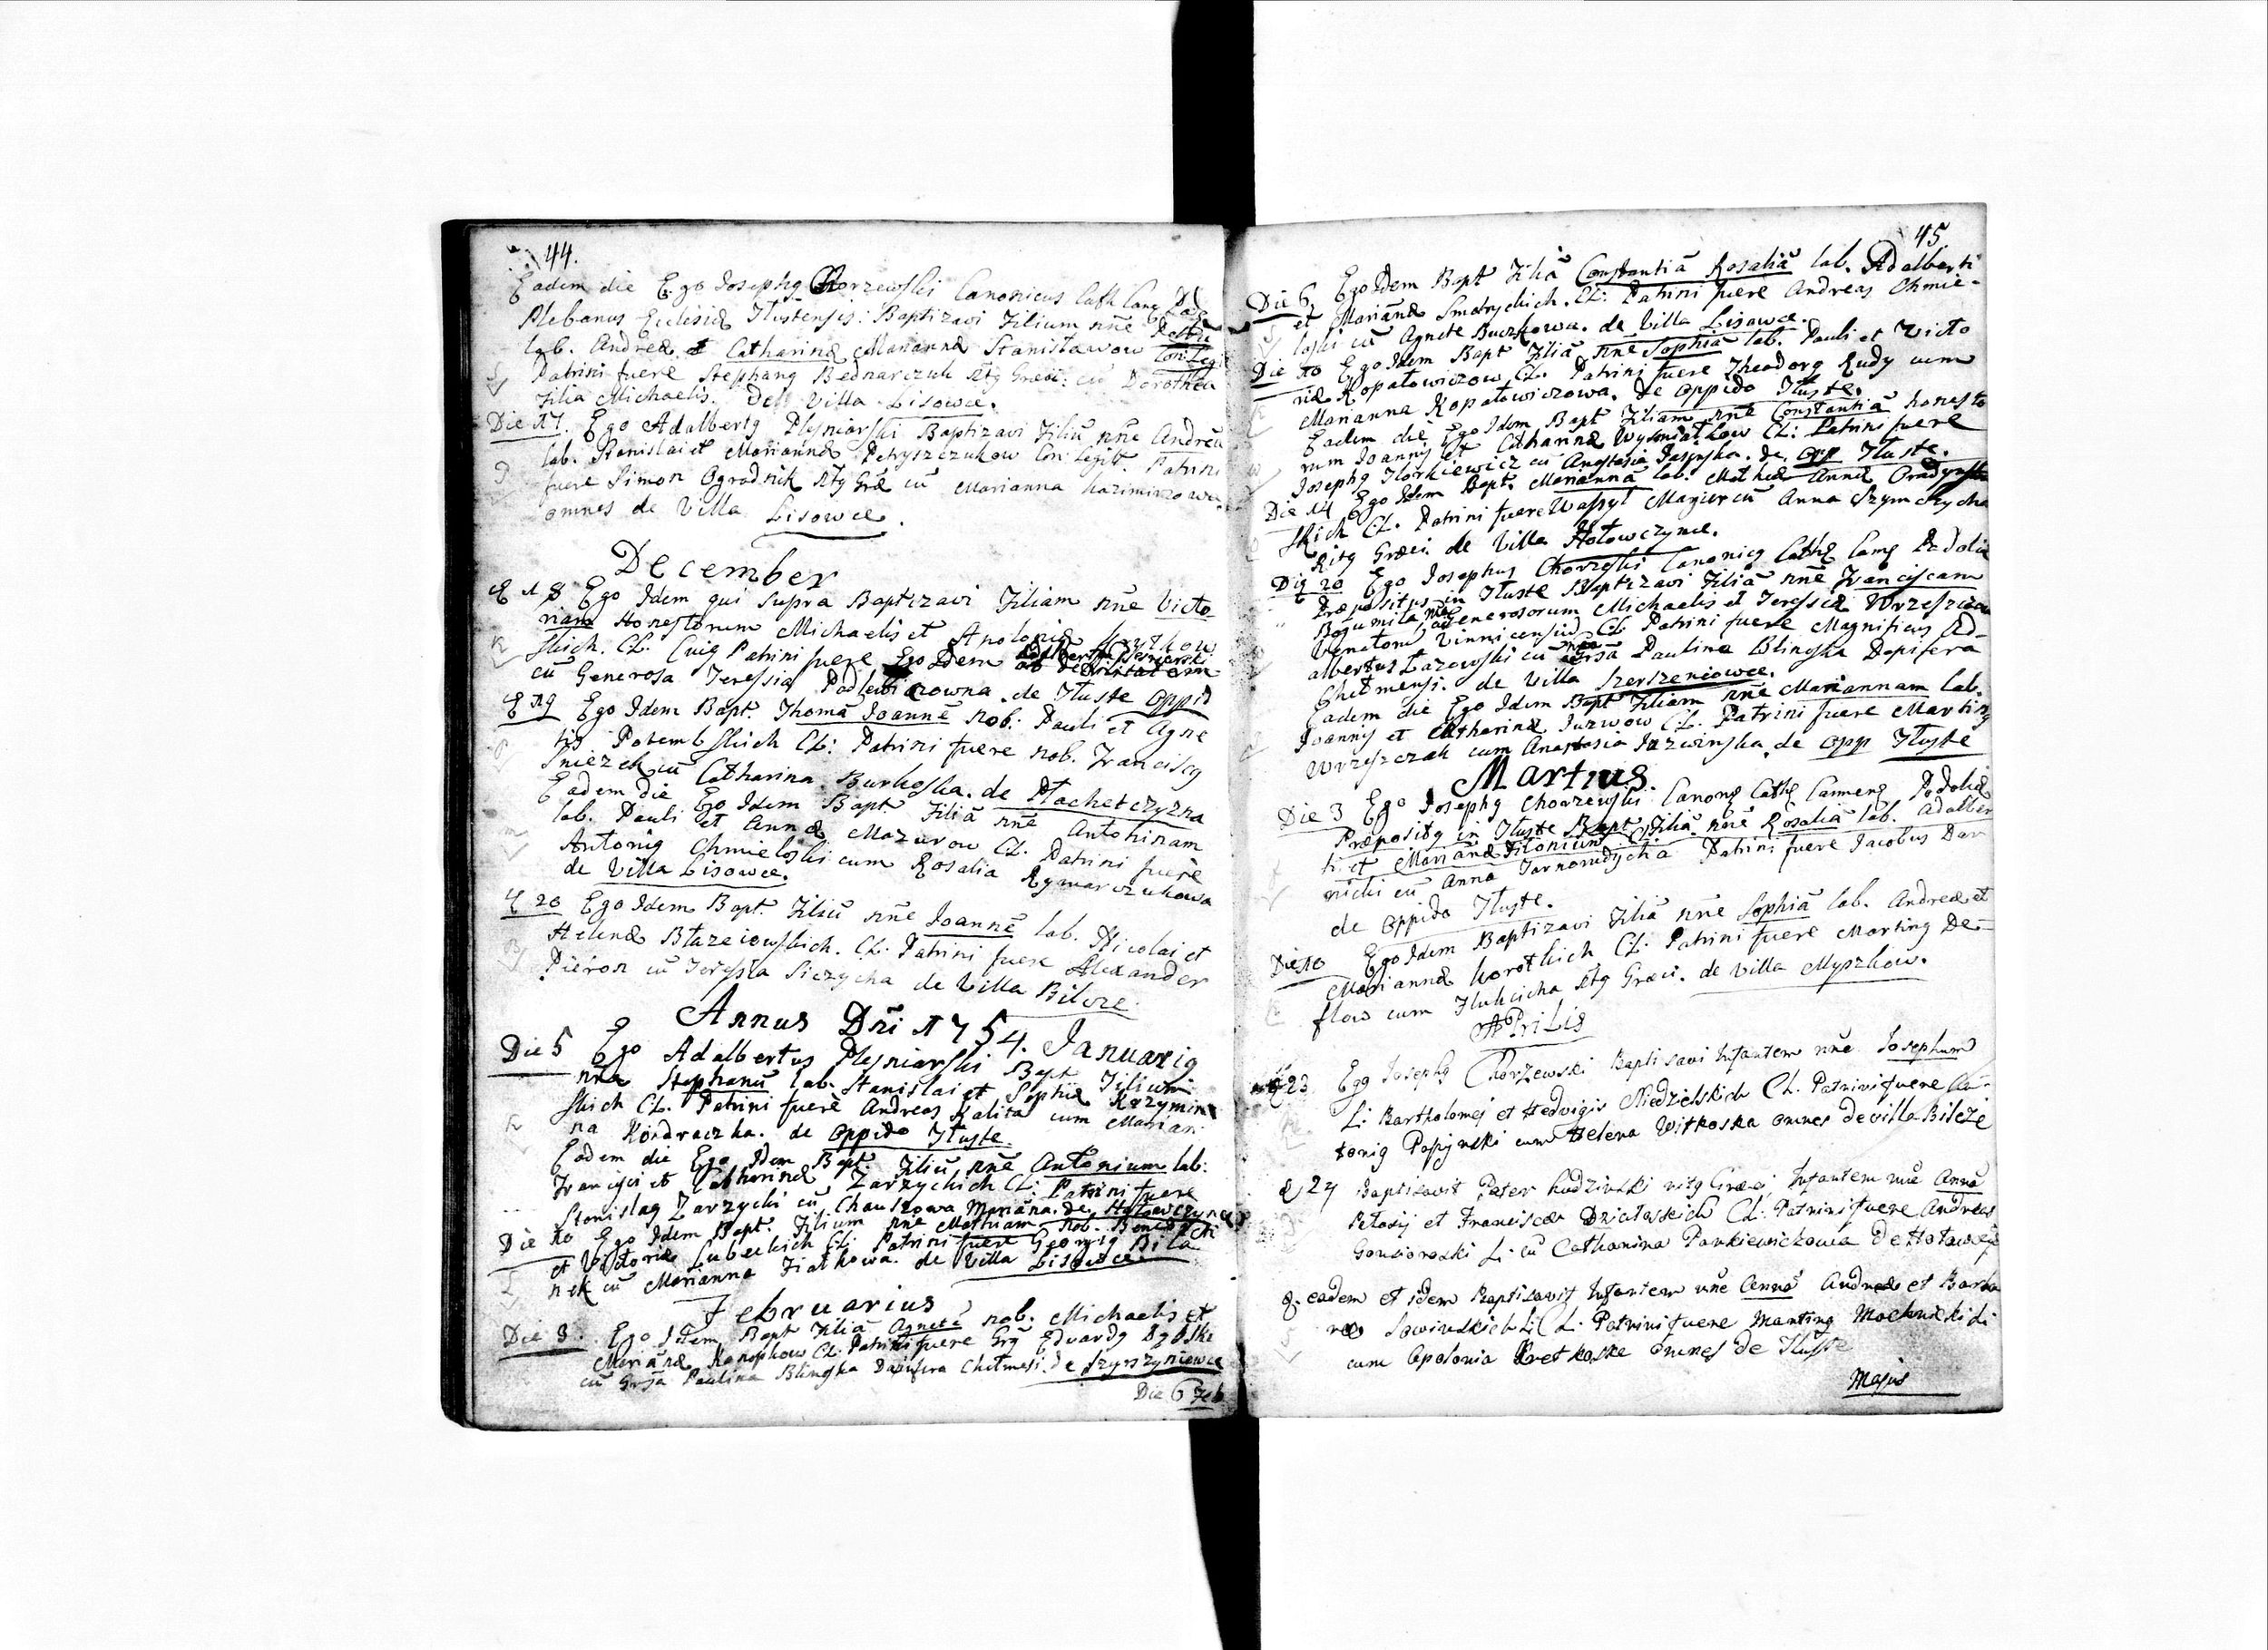 44.
Eadem die Ego Josephg Chorzewski Canonicus Cath Cam
Plebanus Ecclesiæ Tłustensis: Baptizavi Filium nne
lab. Andreæ et Catharinæ Mariannæ Stanisławow Con: Leg:
Patrini fuere Stephang Bednarczuk Rtg Græci: cũ Dorothea
Filia Michaelis. De Villa Lisowce.
Die 17. Ego Adalbertg Plesniarski Baptizavi Filiũ nñe Andreã
lab. Stanislai et Mariannæ Petryszczukow Con: Legit. Patrini
fuere Simon Ogrodnik Rtg Græ cũ Marianna Kazimirzowa
omnes de Villa Lisowce.
December
18 Ego Idem qui supra Baptizavi Filiam nñe Victo
riam Honestorum Michaelis et Apoloniæ
skich. CL. Cuig Patrini fuere Ego Idem
cũ Generosa Teressia Podlewiczowna de Tłuste Oppid
19 Ego Idem Bapt. Thomã Joannẽ Nob: Pauli et Agne
tis Potembskich CL: Patrini fuere nob. Francisg
Sniezek cũ Catharina Burkoska. de Hachetczyzna
Eadem die Ego Idem Bapt Filiã nñe Antoninam
lab. Pauli et Annæ Mazurow CL. Patrini fuere
Antonig Chmieloski cum Rosalia Rymarczukowa
de Villa Lisowce.
20 Ego Idem Bapt. Filiũ nñe Joannẽ lab. Nicolai et
Helenæ Błazeiowskich. CL: Patrini fuere Alexander
Pieron cũ Teressia Siczycha de Villa Bilcze.
Annus Dñi 1754. Januarig
Die 5 Ego Adalbertus Plesniarski Bapt Filium
nñe Stephanũ lab. Stanislai et Sophiæ Kazymin
skich CL. Patrini fuere Andreas Kalita cum Marian
na Kondraczka. de Oppido Tłuste.
Eadem die Ego Idem Bapt. Filiũ nñe Antonium lab:
Francisci et Catharinæ Zarzyckich CL: Patrini fuere
Stanislag Zarzycki cũ Chauszowa Mariãna. de Hołowczynce
Die 10 Ego Idem Bapt. Filium nñe Mathiam Nob. Benedicti
et Victoriæ Lubeckich CL: Patrini fuere Georgig Bila
nek cũ Marianna Fiałkowa. de Villa Lisowce.
Februarius
Die 3. Ego Idem Bapt Filiã Agnetẽ nob. Michaelis et
Mariãnæ Konopkow CL. Patrini fuere Grg Edvardg
cũ Grsa Paulina Blinska Dapifera Chełmesi. de Szyrszyniowce
Die 6 Feb
45
Die 6 Ego Idem Bapt Filiã Constantiã Rosaliã lab. Adalberti
et Mariãnæ Smotryckich. CL: Patrini fuere Andreas Chmie-
loski cũ Agnete Buczkowa. de Villa Lisowce.
Die 10 Ego Idem Bapt Filiã nñe Sophiã lab. Pauli et Victo
riæ Kopatowiczow CL. Patrini fuere Theodorg Rudy cum
Marianna Kopatowiczowa. de Oppido Tłuste.
Eadem die Ego Idem Bapt Filiam nñe Constantiã honesto
rum Joannis et Catharinæ Wysniatkow CL: Patrini fuere
Josephg Florkiewicz cũ Anastasia Jaspyska. de Opp Tłuste.
Die 14 Ego Idem Bapt. Mariannã lab. Mathiæ Annæ
skich CL. Patrini fuere Wasyl Mazur cũ Anna Szymczycha
Ritg Græci. de Villa Hołowczynce.
Die 20 Ego Josephus Chorzeski Canonicg Cathg Camg Podoliæ
Præpositus in Tłuste Baptizavi Filiã nñe Franciscam
Bogumiłã Generosorum Michaelis et Teressiæ
Venatorũ Vinnicensiũ CL Patrini fuere Magnificus Ad-
albertus Łazowski cũ Grsa Paulina Blinska Dapifera
Chełmensi. de Villa Szerszeniowce.
Eadem die Ego Idem Bapt Filiam nñe Mariannam lab.
Joannis et Catharinæ Juzwow CL. Patrini fuere Marting
Wrzeszczak cum Anastasia Jazwinska. de Opp Tłuste
Martius
Die 3 Ego Josephg Chorzewski Canong Cathg Cameng Podoliæ
Præpositg in Tłuste Bapt Filiã nñe Rosaliã lab. Adalber
ti et Mariãnæ Filonium CL. Patrini fuere Jacobus Dar
nicki cũ Anna Tarnorudycha
de Oppido Tłuste.
Die 10 Ego Idem Baptizavi Filiã nñe Sophiã lab. Andreæ et
Mariannæ Korotkich CL. Patrini fuere Marting De-
slow cum Hukcicha Rtg Græci. de Villa Myszkow.
APriLis
23 Egg Josephg Chorzewski Baptisavi Infantem nñe Josephum
L: Bartholomej et Hedvigis Niedzielskich CL. Patrini fuere An-
tonig Popinski cum Helena Witkoska omnes De villa Bilcze
27 Baptisavit Pater Kudzinski ritg Græci Infantem nñe Annã
Petasij et Franciscæ Działaskich CL: Patrini fuere Andreas
Gonsioroski L: cũ Catharina Pankiewiczowa De
eadem et idem Baptisavit Infantem nñe Annã Andreæ et Barba
ræ Sowinskich Li CL. Patrini fuere Marting Mochnicki Li
cum Apolonia Kretkoske omnes De Tłuste
Majus